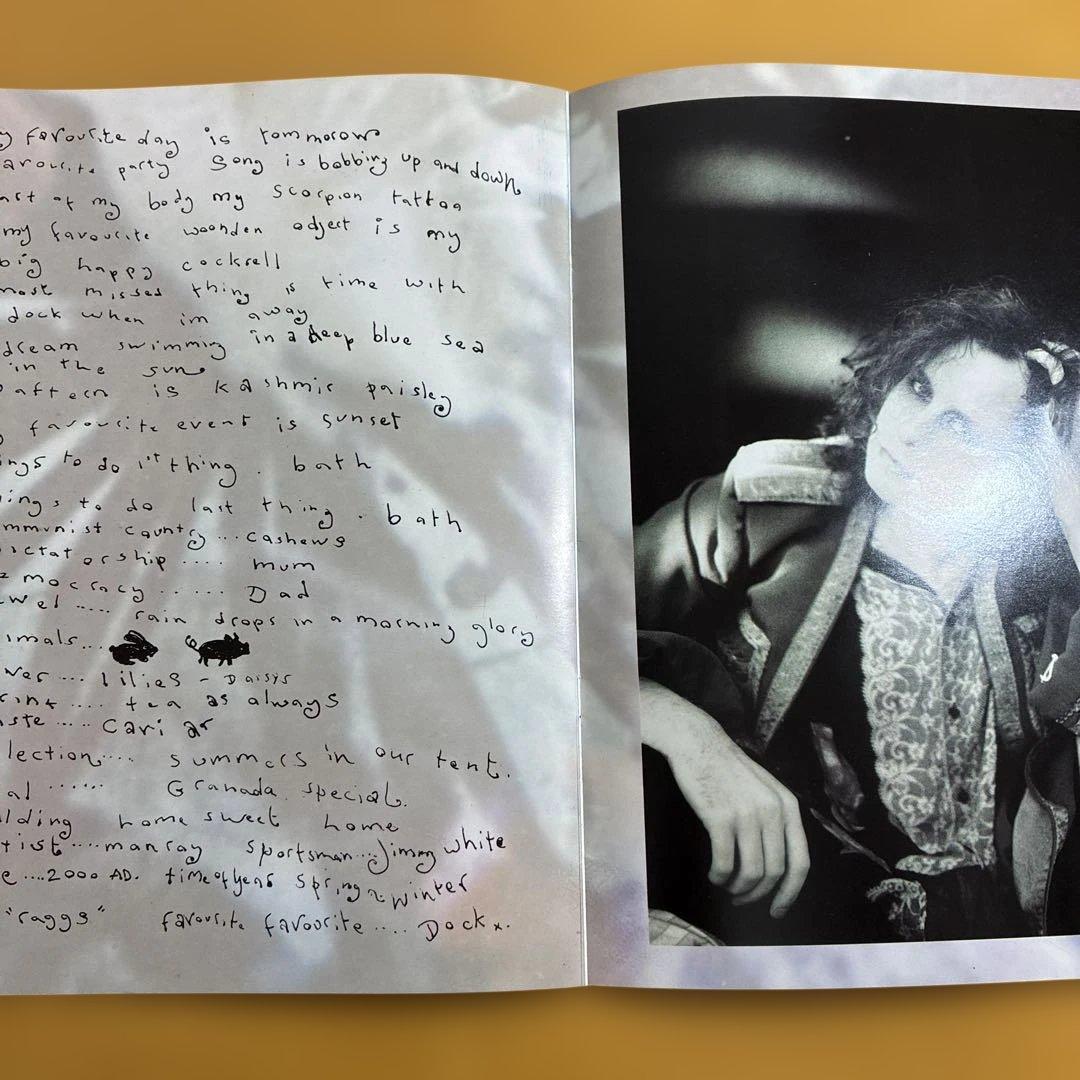 y favourite day is tommorow
avourite party song is bobbing up and down
art of my body my scorpion tattoo
my favourite woonden odject is my
big happy cockrell
most misses thing is time with
dock when im away
dream swimming in a deep blue sea
in the sun
pattern is kashmir paisley
g favourite event is sunset
ings to do 1st thing . bath
ings to do last thing . bath
mmunist country ... cashews
ictatorship .... mum
mocracy ...... Dad
wel ..... rain drops in a morning glory
imals...
wer ... lilies - Daisys
rink .... tea as always
aste ..... cari ar
llection.... summers in our tent.
al ...... Granada special.
ilding home sweet home
tist .... manray sportsman...jimmy white
e ....2000 AD. time of year spring ~ winter
"raggs" favourite favourite .... Dock x.